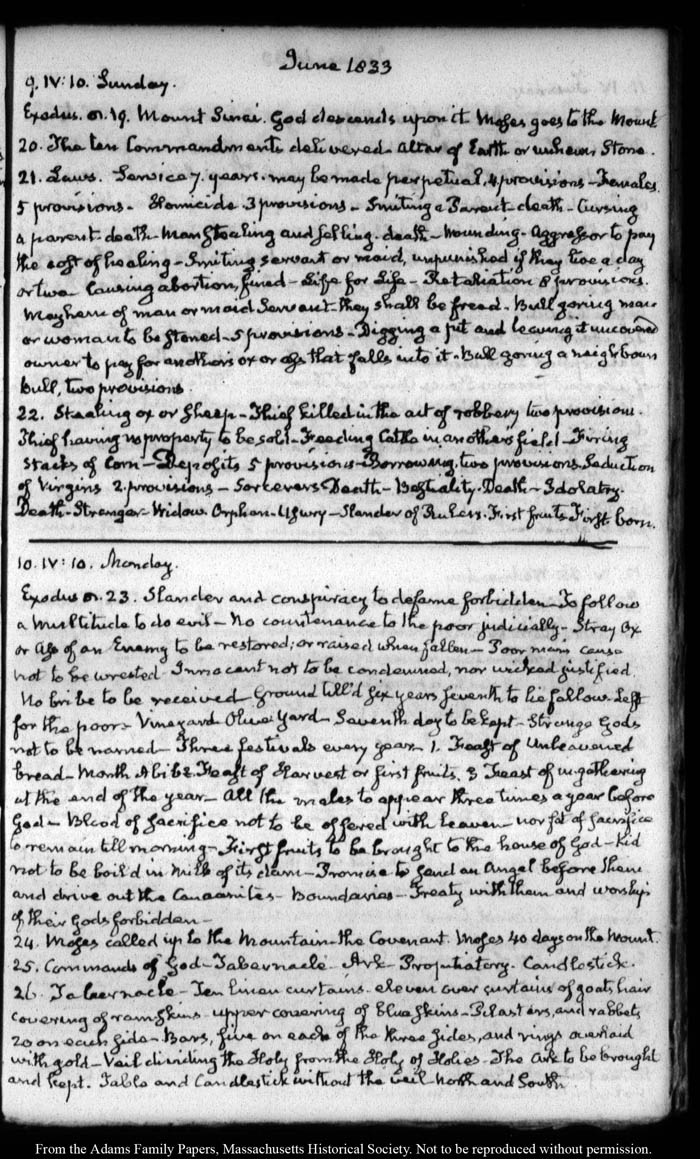 June 1833
9. IV:10. Sunday.
Exodus. on. 19. Mount Sinai. God descends upon it Moses goes to the Mount
20. The ten Commandments delivered - altar of Earth or unhewn Stone.
21. Laws. Service 7. years. may be made perpetual, 4 provisions - Females.
5 provisions - Homicide 3 provisions - Smiting a Parent death - Cursing
a parent death - Man Stealing and selling. death - wounding - Aggressor to pay
the cost of healing - Smiting servant or maid, unpunished if they live a day
or two - Causing abortion, fined - Life for Life - Retaliation 8 provisions.
Mayhem of man or maid Servant - they shall be freed - Bull goring man
or woman to be stoned - 5 provisions - Digging a pit and leaving it uncovered
owner to pay for another's ox or ass that falls into it - Bull goring a neighbours
bull, two provisions.
22. Stealing ox or sheep - Thief killed in the act of robbery two provisions.
Thief having no property to be sold - Feeding Cattle in another's field - Firing
Stacks of Corn - Deposits 5 provisions - Borrowing, two provisions. Seduction
of Virgins 2. provisions - Sorcerers Death - Bestiality. Death - Idolatry.
Death - Stranger - Widow. Orphan - Usury - Slander of Rulers. First fruits First born.
10. IV:10. Monday.
Exodus on. 23. Slander and conspiracy to defame forbidden - To follow
a multitude to do evil - No countenance to the poor judicially - Stray Ox
or Ass of an Enemy to be restored; or raised when fallen - Poor man's cause
not to be wrested - Innocent not to be condemned, nor wicked justified.
No bribe to be received - Ground till'd six years seventh to lie fallow. Left
for the poor - Vineyard Olive Yard - Seventh day to be kept - Strange Gods
not to be named - Three festivals every year - 1. Feast of Unleavened
bread - Month Abib 2. Feast of Harvest or first fruits. 3 Feast of in-gathering
at the end of the year - All the males to appear three times a year before
God - Blood of sacrifice not to be offered with leaven - nor fat of sacrifice
to remain till morning - First fruits to be brought to the house of God - Kid
not to be boil'd in milk of its dam - Promise to send an Angel before them
and drive out the Canaanites - Boundaries - Treaty with them and worship
of their Gods forbidden -
24. Moses called up to the Mountain - the Covenant. Moses 40 days on the Mount.
25. Commands of God - Tabernacle - Ark - Propitiatory - Candlestick.
26. Tabernacle - Ten linen curtains - eleven over curtains of goats hair
covering of ramskins - upper covering of blue skins - Pilasters, and rabbets
20 on each side - Bars, five on each of the three sides, and rings overlaid
with gold - Veil dividing the Holy from the Holy of Holies - The Ark to be brought
and kept. Table and Candlestick without the veil - North and South.
From the Adams Family Papers, Massachusetts Historical Society. Not to be reproduced without permission.